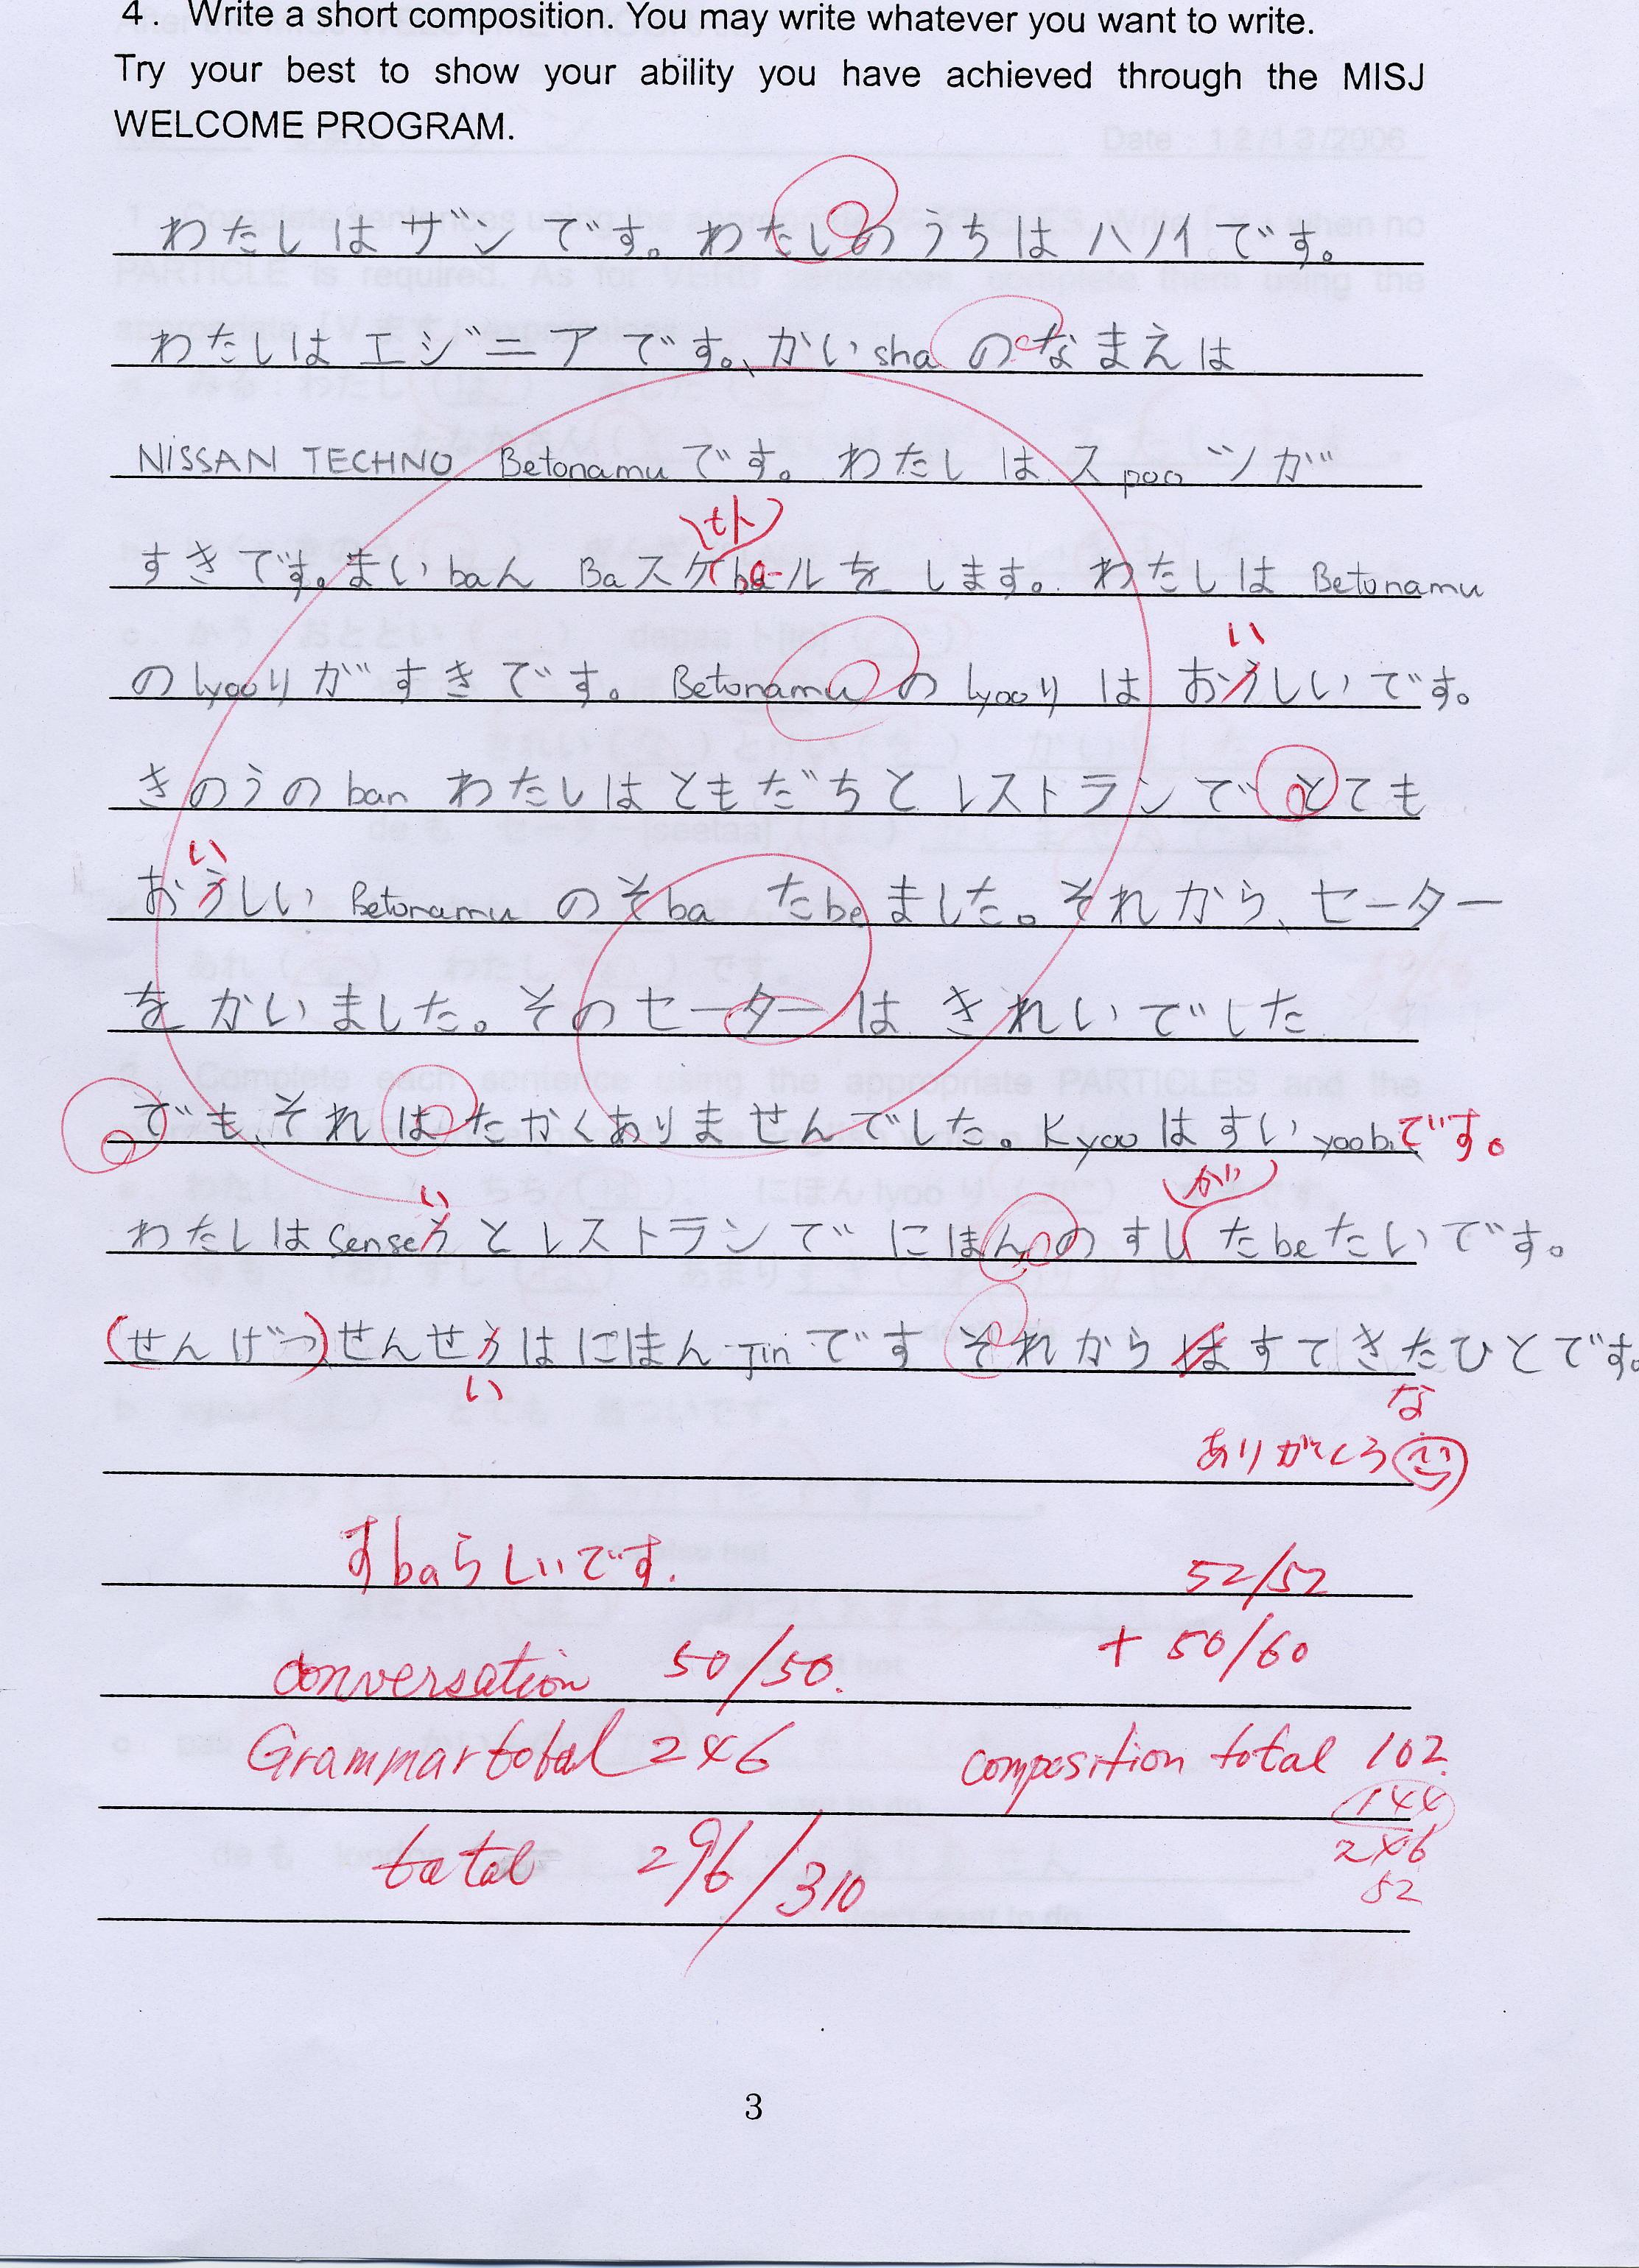 4. Write a short composition. You may write whatever you want to write.
Try your best to show your ability you have achieved through the MISJ
WELCOME PROGRAM.
わたしはザンです。わたしのうちはハノイです。
わたしはエジニアです。、かいshaのなまえは
NiSSAN TECHNO Betonamuです。わたしはスpooツが
(セト)
すきです。まいbaん Baスケbaールをします。わたしは Betonamu
い
のlyooりがすきです。Betonamuのlyooりはおうしいです。
きのうのban わたしはともだちとレストランでとても
い
おうしい Betonamuのそba たbeました。それから、セーター
をかいました。そのセーターはきれいでした
でも、それはたかくありませんでした。Kyooはすいyoobiです。
い (が)
わたしはSenseうとレストランでにほんのすしたbeたいです。
(せんげつ)せんせうはにほんJinです それからはすてきたひとです。
い な
ありがとう
すbaらしいです.
52/52
+ 50/60
conversation 50/50.
Grammar total 246 composition total 102.
144
total 296/310
246
52
3